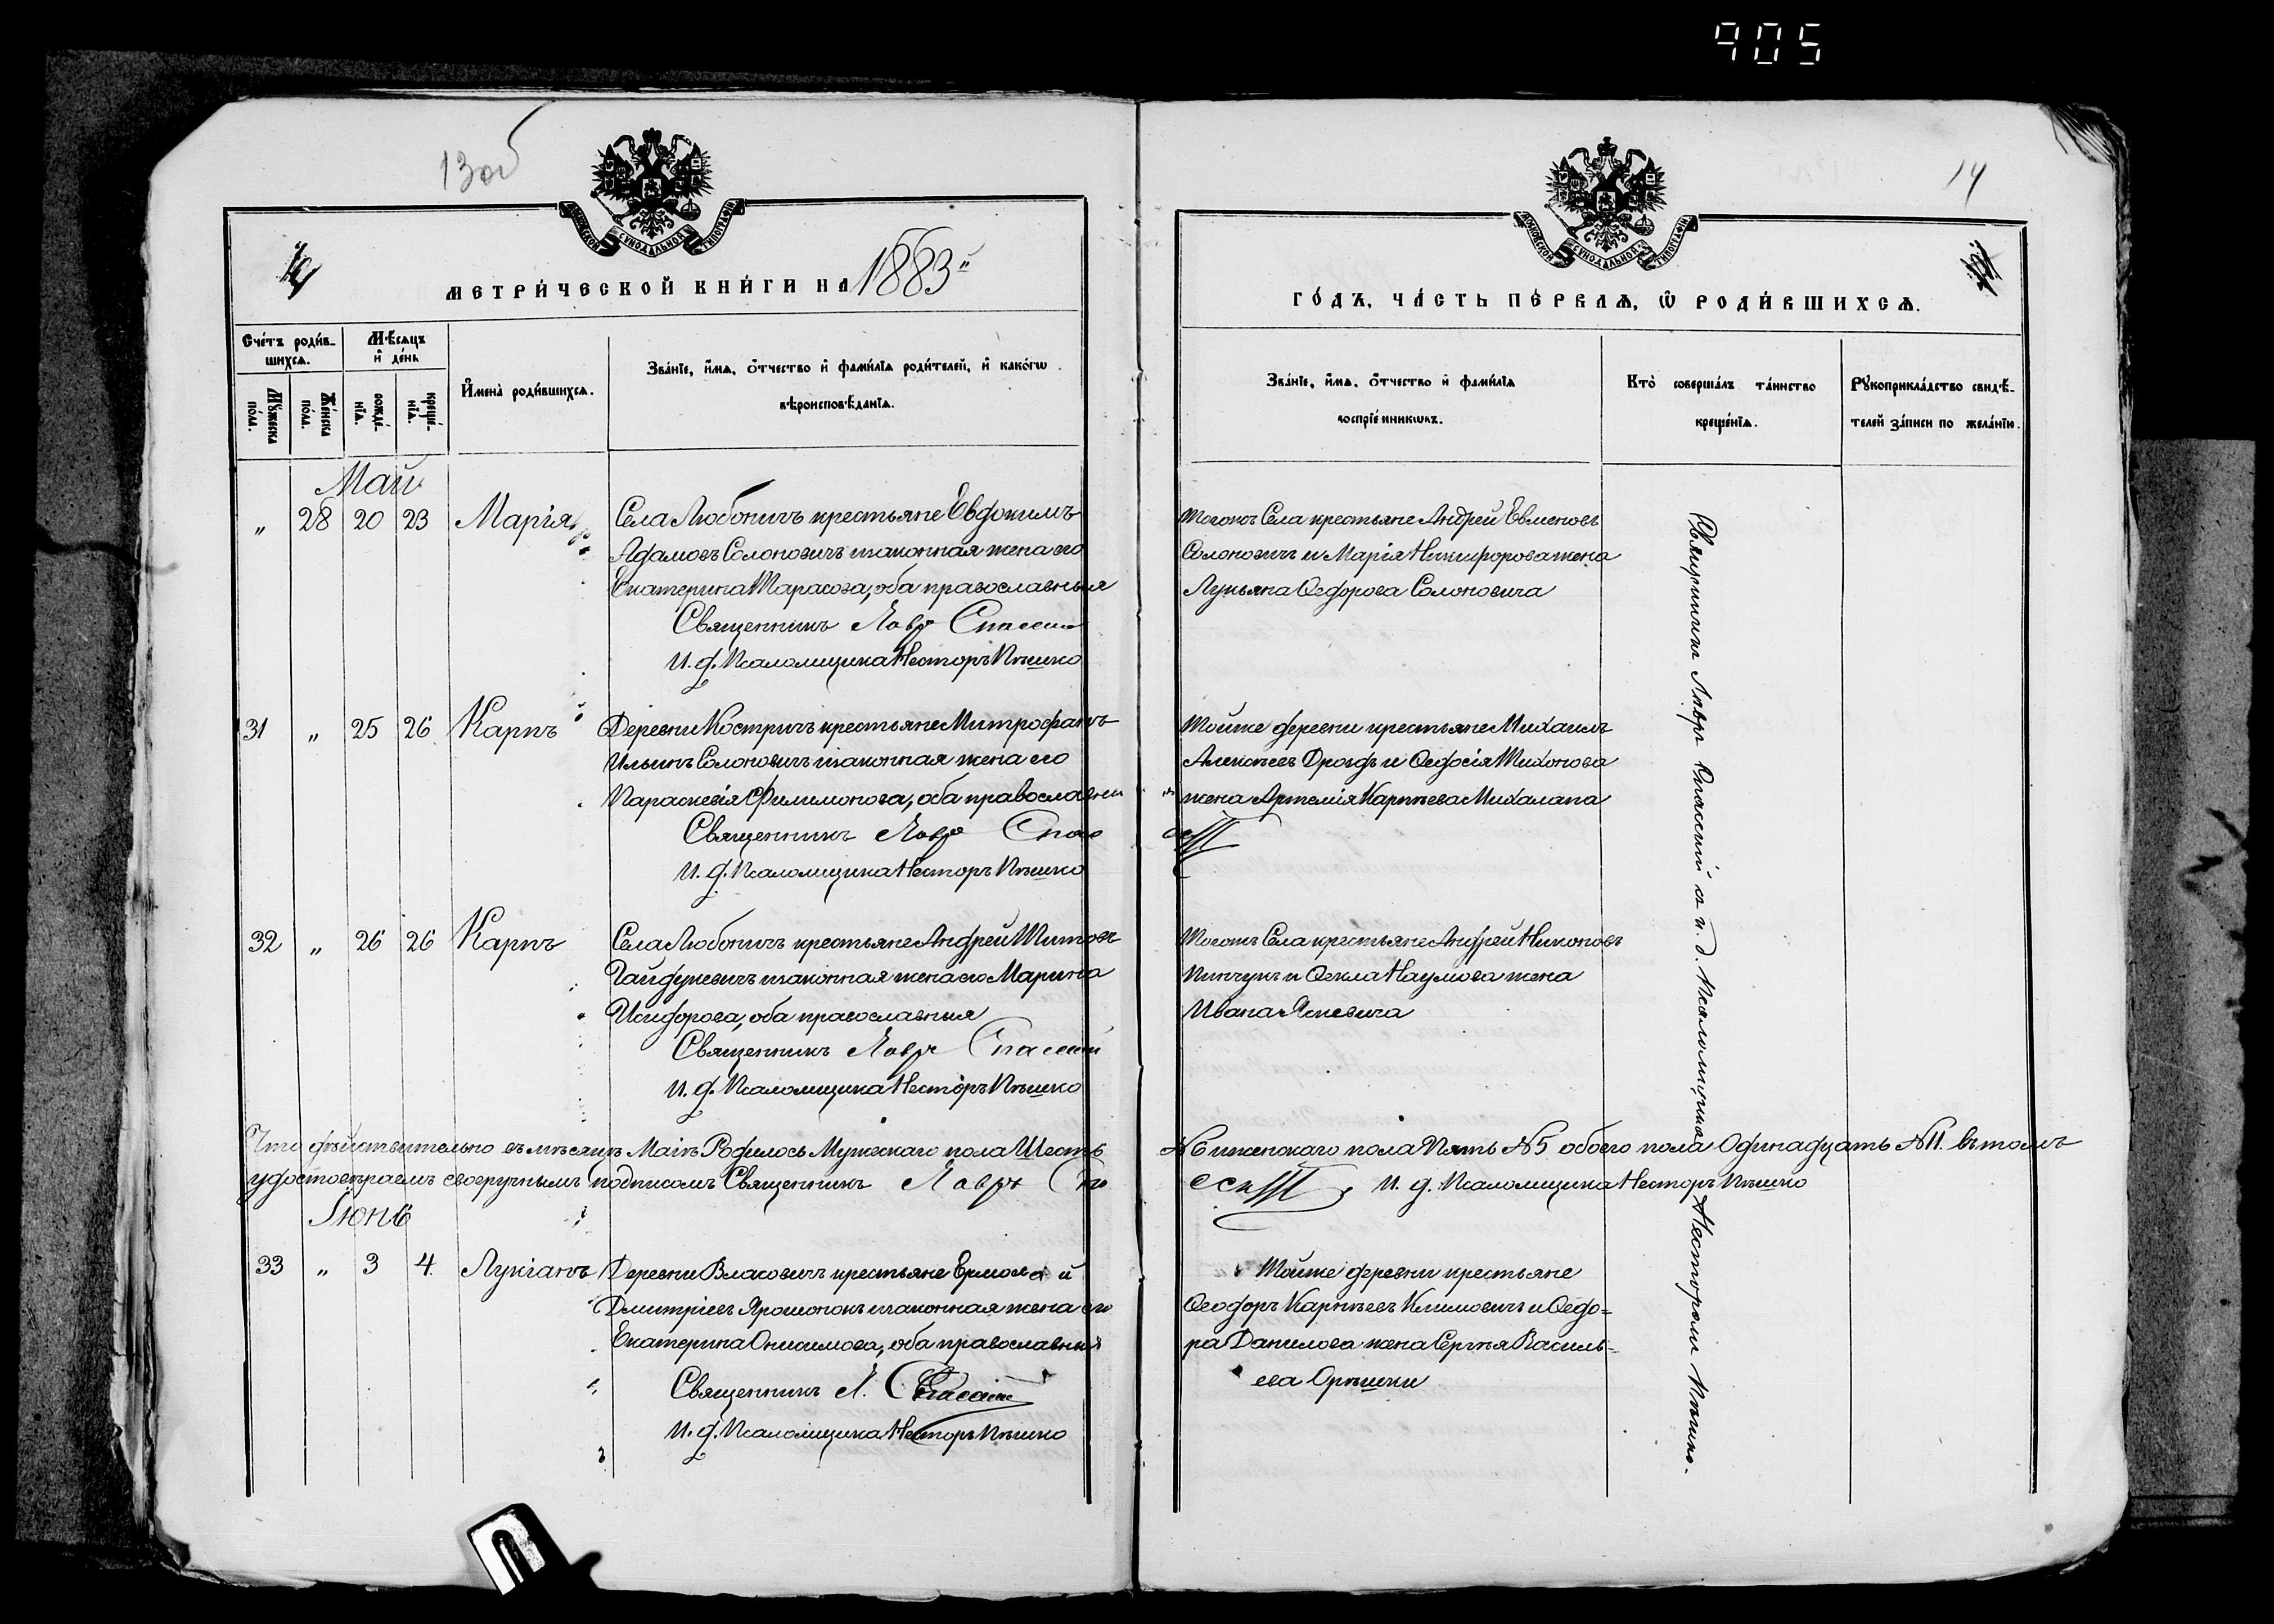 905
13 об
14
МОСКОВСКОЙ СѴНОДАЛЬНОЙ ТИПОГРАФІИ
МОСКОВСКОЙ СѴНОДАЛЬНОЙ ТИПОГРАФІИ
МЕТРИ́ЧЕСКОЙ КНИ́ГИ НА 1883й
ГО́ДЪ, ЧА́СТЬ ПЕ́РВАѦ, Ѡ҆ РОДИ́ВШИХСѦ.
Сче́тъ роди́в-
шихсѧ.
Мѣ́сѧцъ
и҆ де́нь
Мꙋ́жеска по́ла.
Же́нска по́ла.
рожде́-нїѧ.
креще́-нїѧ.
И҆мена̀ роди́вшихсѧ.
Зва́нїе, и҆́мѧ, ѻ҆́тчество и҆ фами́лїѧ роди́телей, и҆ како́гѡ
вѣроисповѣ́данїѧ.
Зва́нїе, и҆́мѧ, ѻ҆́тчество и҆ фами́лїѧ
воспрїе́мникѡвъ.
Кто̀ соверша́лъ та́инство
креще́нїѧ.
Рꙋкоприкла́дство свидѣ́-
телей за́писи по жела́нїю.
Май
„ 28 20 23 Марія
Села Любоничъ крестьяне Евдокимъ
Адамовъ Солоновичъ изаконная жена его
Екатерина Тарасова, оба православныя
Священникъ Лавръ Спасскій
И. д. Псаломщика Несторъ Пѣшко
Тогожъ Села крестьяне Андрей Евменовъ
Солоновичъ и Марія Никифорова жена
Лукьяна Ѳедорова Солоновича
31 „ 25 26 Карпъ
Деревни Костричъ крестьяне Митрофанъ
Ильинъ Солоновичъ изаконная жена его
Параскевія Филимонова, оба православныя
Священникъ Лавръ Спасскій
И. д. Псаломщика Несторъ Пѣшко
Тойже деревни крестьяне Михаилъ
Алексѣевъ Дроздъ и Ѳеодосія Тихонова
жена Артемія Карпѣева Михалапа
32 „ 26 26 Карпъ
Села Любоничъ крестьяне Андрей Титовъ
Гайдукевичъ изаконная жена его Марина
Исидорова, оба православныя
Священникъ Лавръ Спасскій
И. д. Псаломщика Несторъ Пѣшко
Тогожъ Села крестьяне Андрей Никоновъ
Пинчукъ и Ѳекла Наумова жена
Ивана Яскевича
Что дѣйствительно въ мѣсяцѣ Маѣ Родилось Мужескаго пола Шесть №6 иженскаго пола Пять №5 обоего пола Одинадцать №11. въ томъ
удостовѣряемъ своеручнымъ подписомъ Священникъ Лавръ Спасскій, И. д. Псаломщика Несторъ Пѣшко
Іюнь
33 „ 3 4 Лукіанъ
Деревни Власовичъ крестьяне Ермолай
Дмитріевъ Ярошонокъ изаконная жена его
Екатерина Онисимова, оба православныя
Священникъ Л. Спасскій
И. д. Псаломщика Несторъ Пѣшко
Тойже деревни крестьяне
Ѳеодоръ Карпѣевъ Климовичъ и Ѳедо=
ра Данилова жена Сергѣя Василь=
ева Орѣшки
Священникъ Лавръ Спасскій съ и. д. Псаломщика Несторомъ Пѣшко.